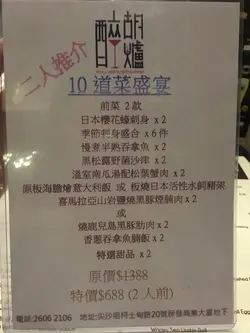 二人推介
醉胡爐
10 道菜盛宴
前菜 2 款
日本櫻花蠔刺身 x 2
季節刺身盛合 x 6 件
慢煮半熟吞拿魚 x 2
黑松露野菌沙律 x 2
溫室南瓜湯配松葉蟹肉 x 2
原板海膽燴意大利飯 或 板燒日本活性水飼豬架
喜馬拉亞山岩鹽燒黑豚煙腩肉 x 2
或
燒鹿兒島黑豚肋肉 x 2
香蔥吞拿魚腩飯 x 2
特選甜品 x 2
原價$1388
特價$688 (2 人前)
電話:2606 2106 地址:尖沙咀柯士甸路20號保發商業大廈地下